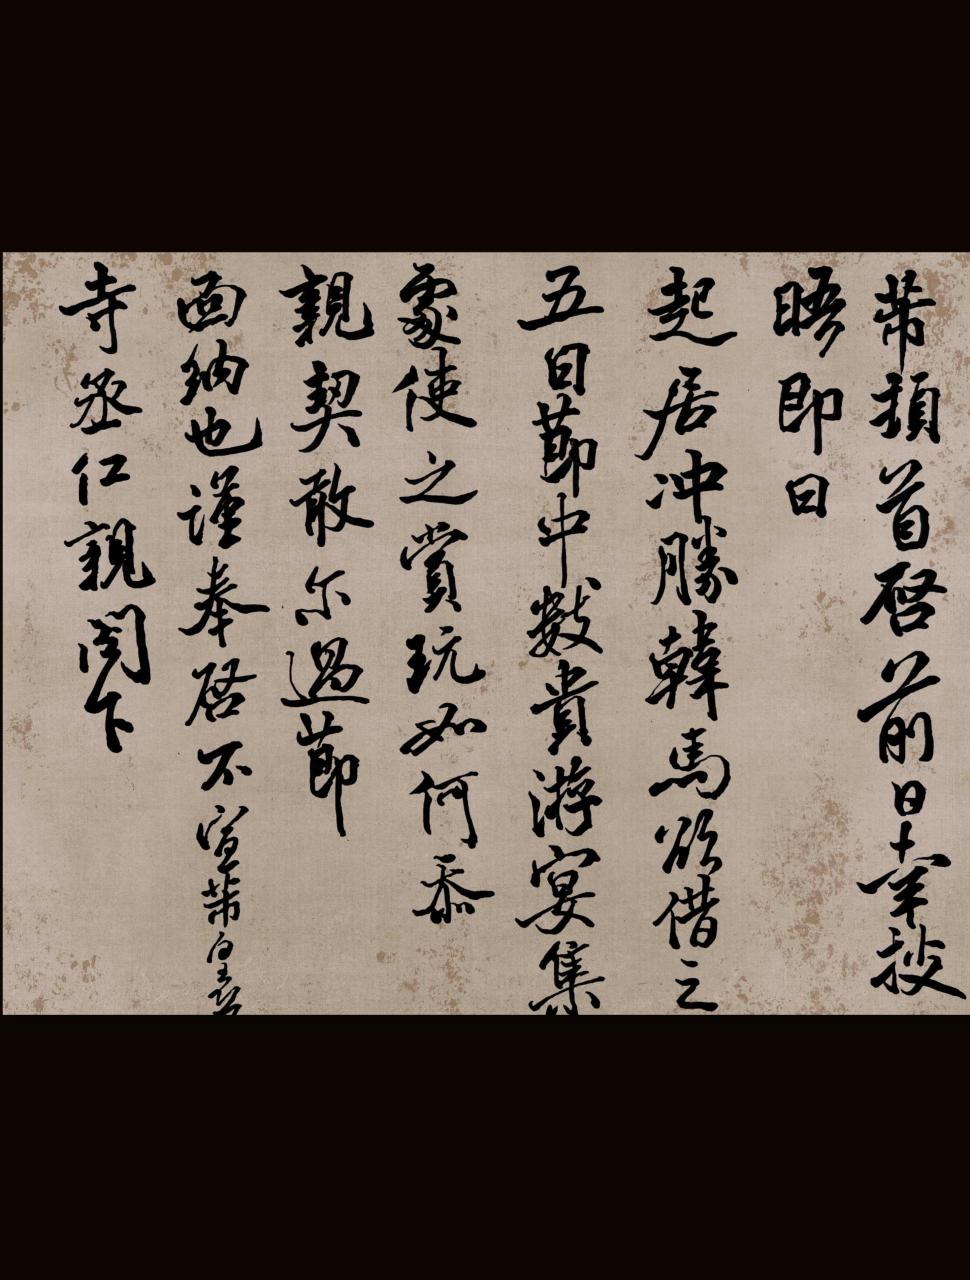 芾頓首啓前日幸披
晤即日
起居冲勝韓馬欲借三
五日節中數貴游宴集
處使之賞玩如何忝
親契敢尔過節
面納也謹奉啓不宣芾皇恐
寺丞仁親閤下